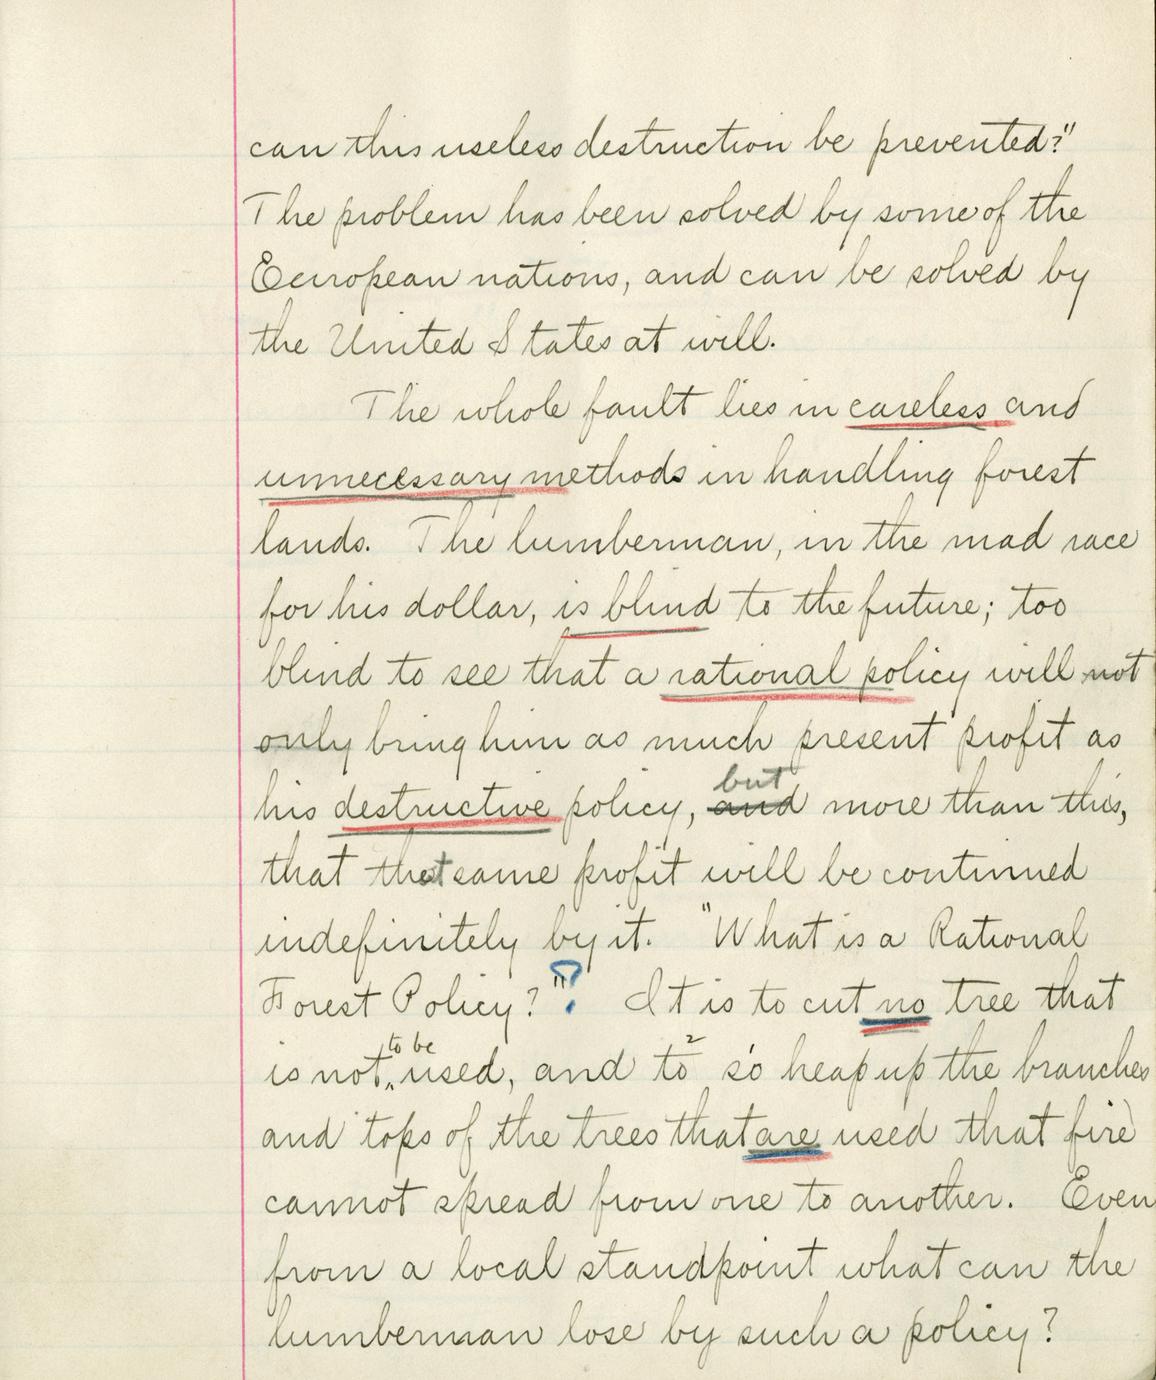 can this useless destruction be prevented?"
The problem has been solved by some of the
European nations, and can be solved by
the United States at will.
The whole fault lies in careless and
unnecessary methods in handling forest
lands. The lumberman, in the mad race
for his dollar, is blind to the future; too
blind to see that a rational policy will not
only bring him as much present profit as
but
his destructive policy, and more than this,
that that same profit will be continued
indefinitely by it. "What is a Rational
Forest Policy?"? It is to cut no tree that
to be
is not used, and to so heap up the branches
and tops of the trees that are used that fire
cannot spread from one to another. Even
from a local standpoint what can the
lumberman lose by such a policy?